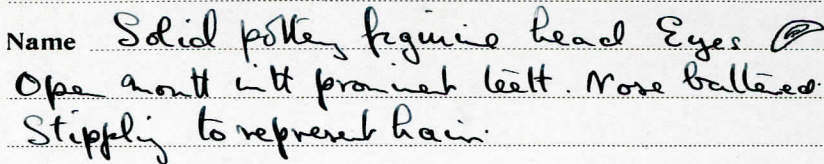 Name Solid pottery figurine head Eyes
Open mouth with prominent teeth. Nose battered.
Stippling to represent hair.